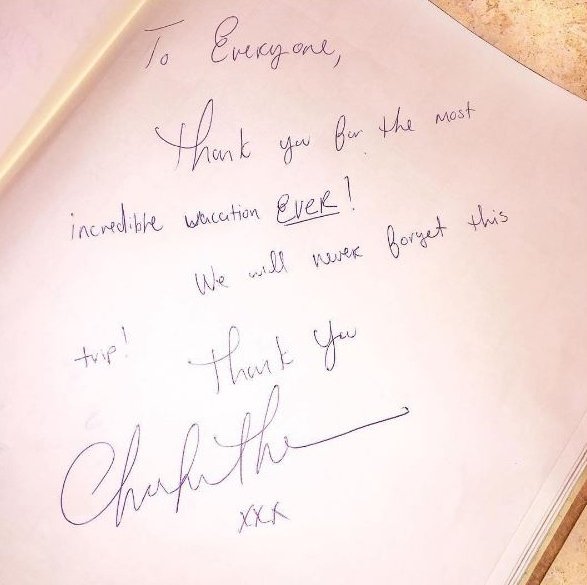 To Everyone,
Thank you for the most
incredible vacation Ever!
We will never forget this
trip!
Thank you
xxx